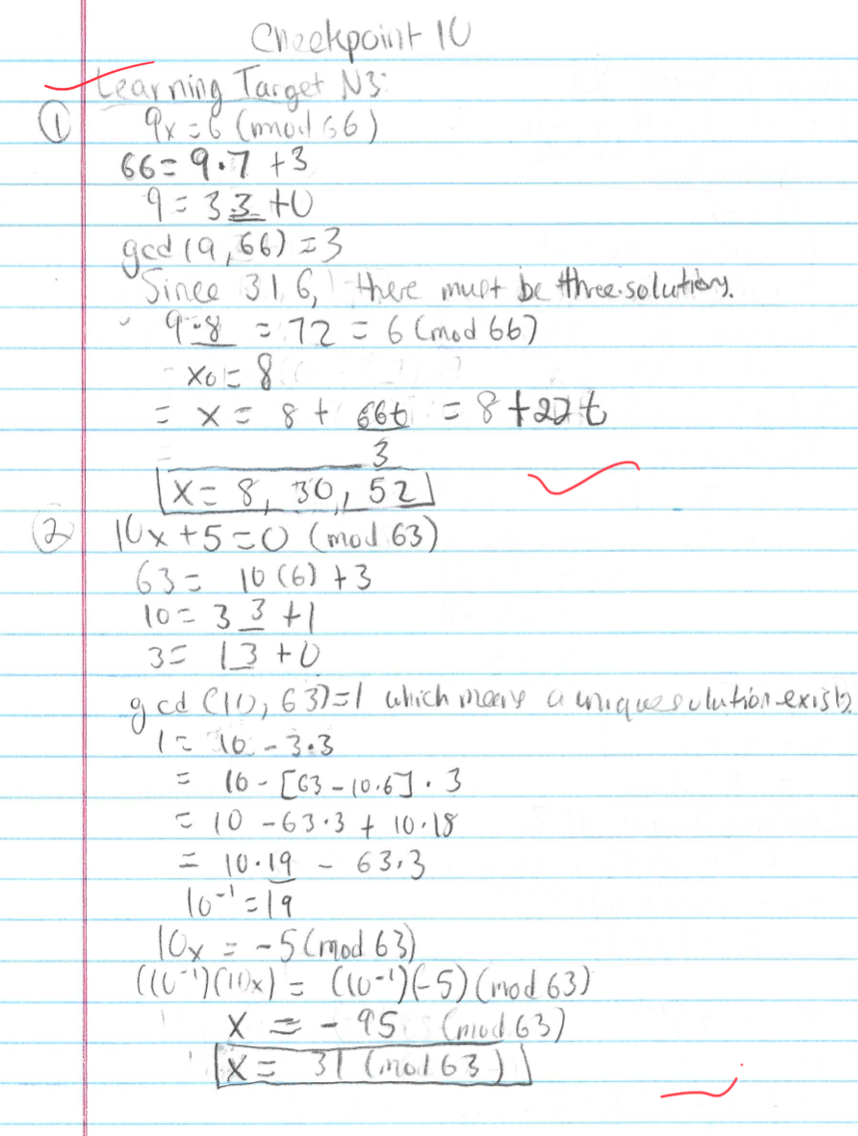 Checkpoint 10
Learning Target N3:
① 9x = 6 (mod 66)
66 = 9·7 + 3
9 = 3 3 + 0
gcd (9, 66) = 3
Since 3 | 6, there must be three solutions.
9·8 = 72 = 6 (mod 66)
x0 = 8
= x = 8 + 66t/3 = 8 + 22t
x = 8, 30, 52
② 10x + 5 = 0 (mod 63)
63 = 10(6) + 3
10 = 3 3 + 1
3 = 1 3 + 0
gcd (10, 63) = 1 which means a unique solution exists.
1 = 10 - 3·3
= 10 - [63 - 10·6] · 3
= 10 - 63·3 + 10·18
= 10·19 - 63·3
10⁻¹ = 19
10x = -5 (mod 63)
((10⁻¹)(10x) = (10⁻¹)(-5) (mod 63)
x = -95 (mod 63)
x = 31 (mod 63)